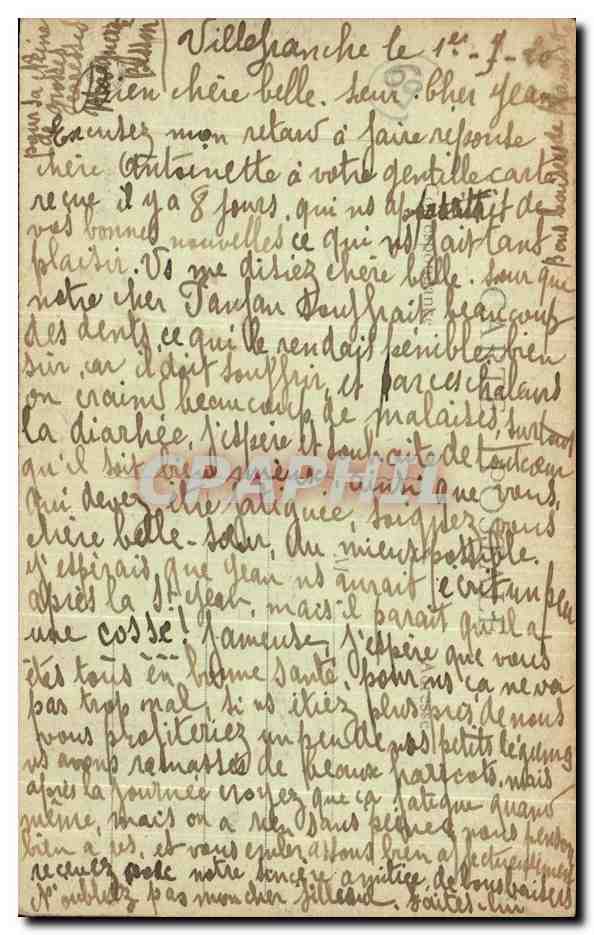 Villefranche le 1er - 7 - 20
Bien chère belle-sœur. Cher Jean
Excusez mon retard à faire reponse
chère Antoinette à votre gentille carte
reçue il y a 8 jours, qui ns apportait de
vos bonnes nouvelles ce qui ns fait tant
plaisir. Vs me disiez chère belle-sœur que
notre cher Fanfan souffrait beaucoup
des dents, ce qui le rendait pénible, bien
sûr, car il doit souffrir, et par ces chaleurs
on craint beaucoup de malaises, surtout
la diarhée, j'espère et souhaite de tout cœur
qu'il soit bien mieux, ainsi que vous,
qui devez être fatiguée, soignez vous
chère belle-sœur, du mieux possible.
J'espérais que Jean ns aurait écrit un peu
après la St Jean, mais il parait qu'il a
une cosse! fameuse, j'espère que vous
êtes tous en bonne santé, pour ns ca ne va
pas trop mal, si vs étiez plus près de nous
vous profiteriez un peu de nos petits légumes
ns avons ramassé de beaux haricots, mais
après la journée croyez que ça fatigue quand
même, mais on a rien sans peine, nous pensons
bien à vs, et vous embrassons bien affectueusement
recevez notre sincère amitiée, de bons baisers
N'oubliez pas mon cher filleul, faites lui
CARTE POSTALE
Correspondance
Adresse
CPAPHIL